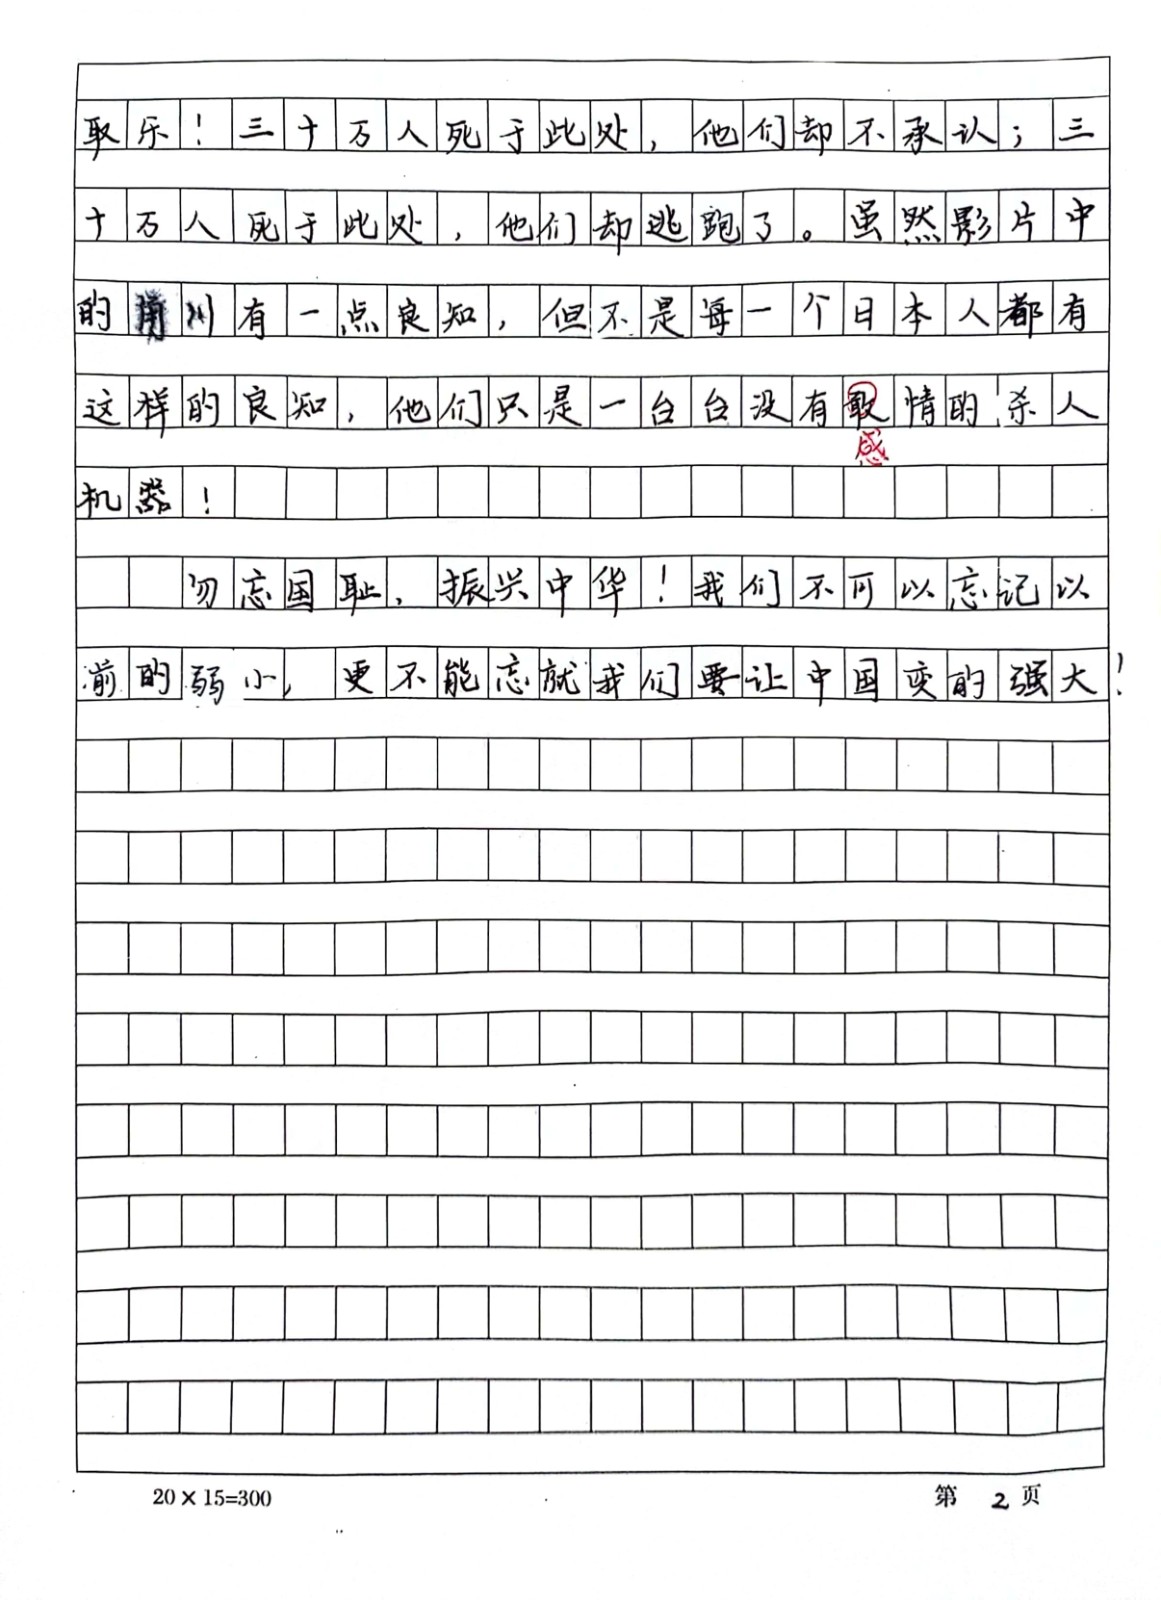 取乐！三十万人死于此处，他们却不承认；三
十万人死于此处，他们却逃跑了。虽然影片中
的角川有一点良知，但不是每一个日本人都有
这样的良知，他们只是一台台没有敢情的杀人
感
机器！
勿忘国耻，振兴中华！我们不可以忘记以
前的弱小，更不能忘就我们要让中国变的强大！
20×15=300
第 2 页